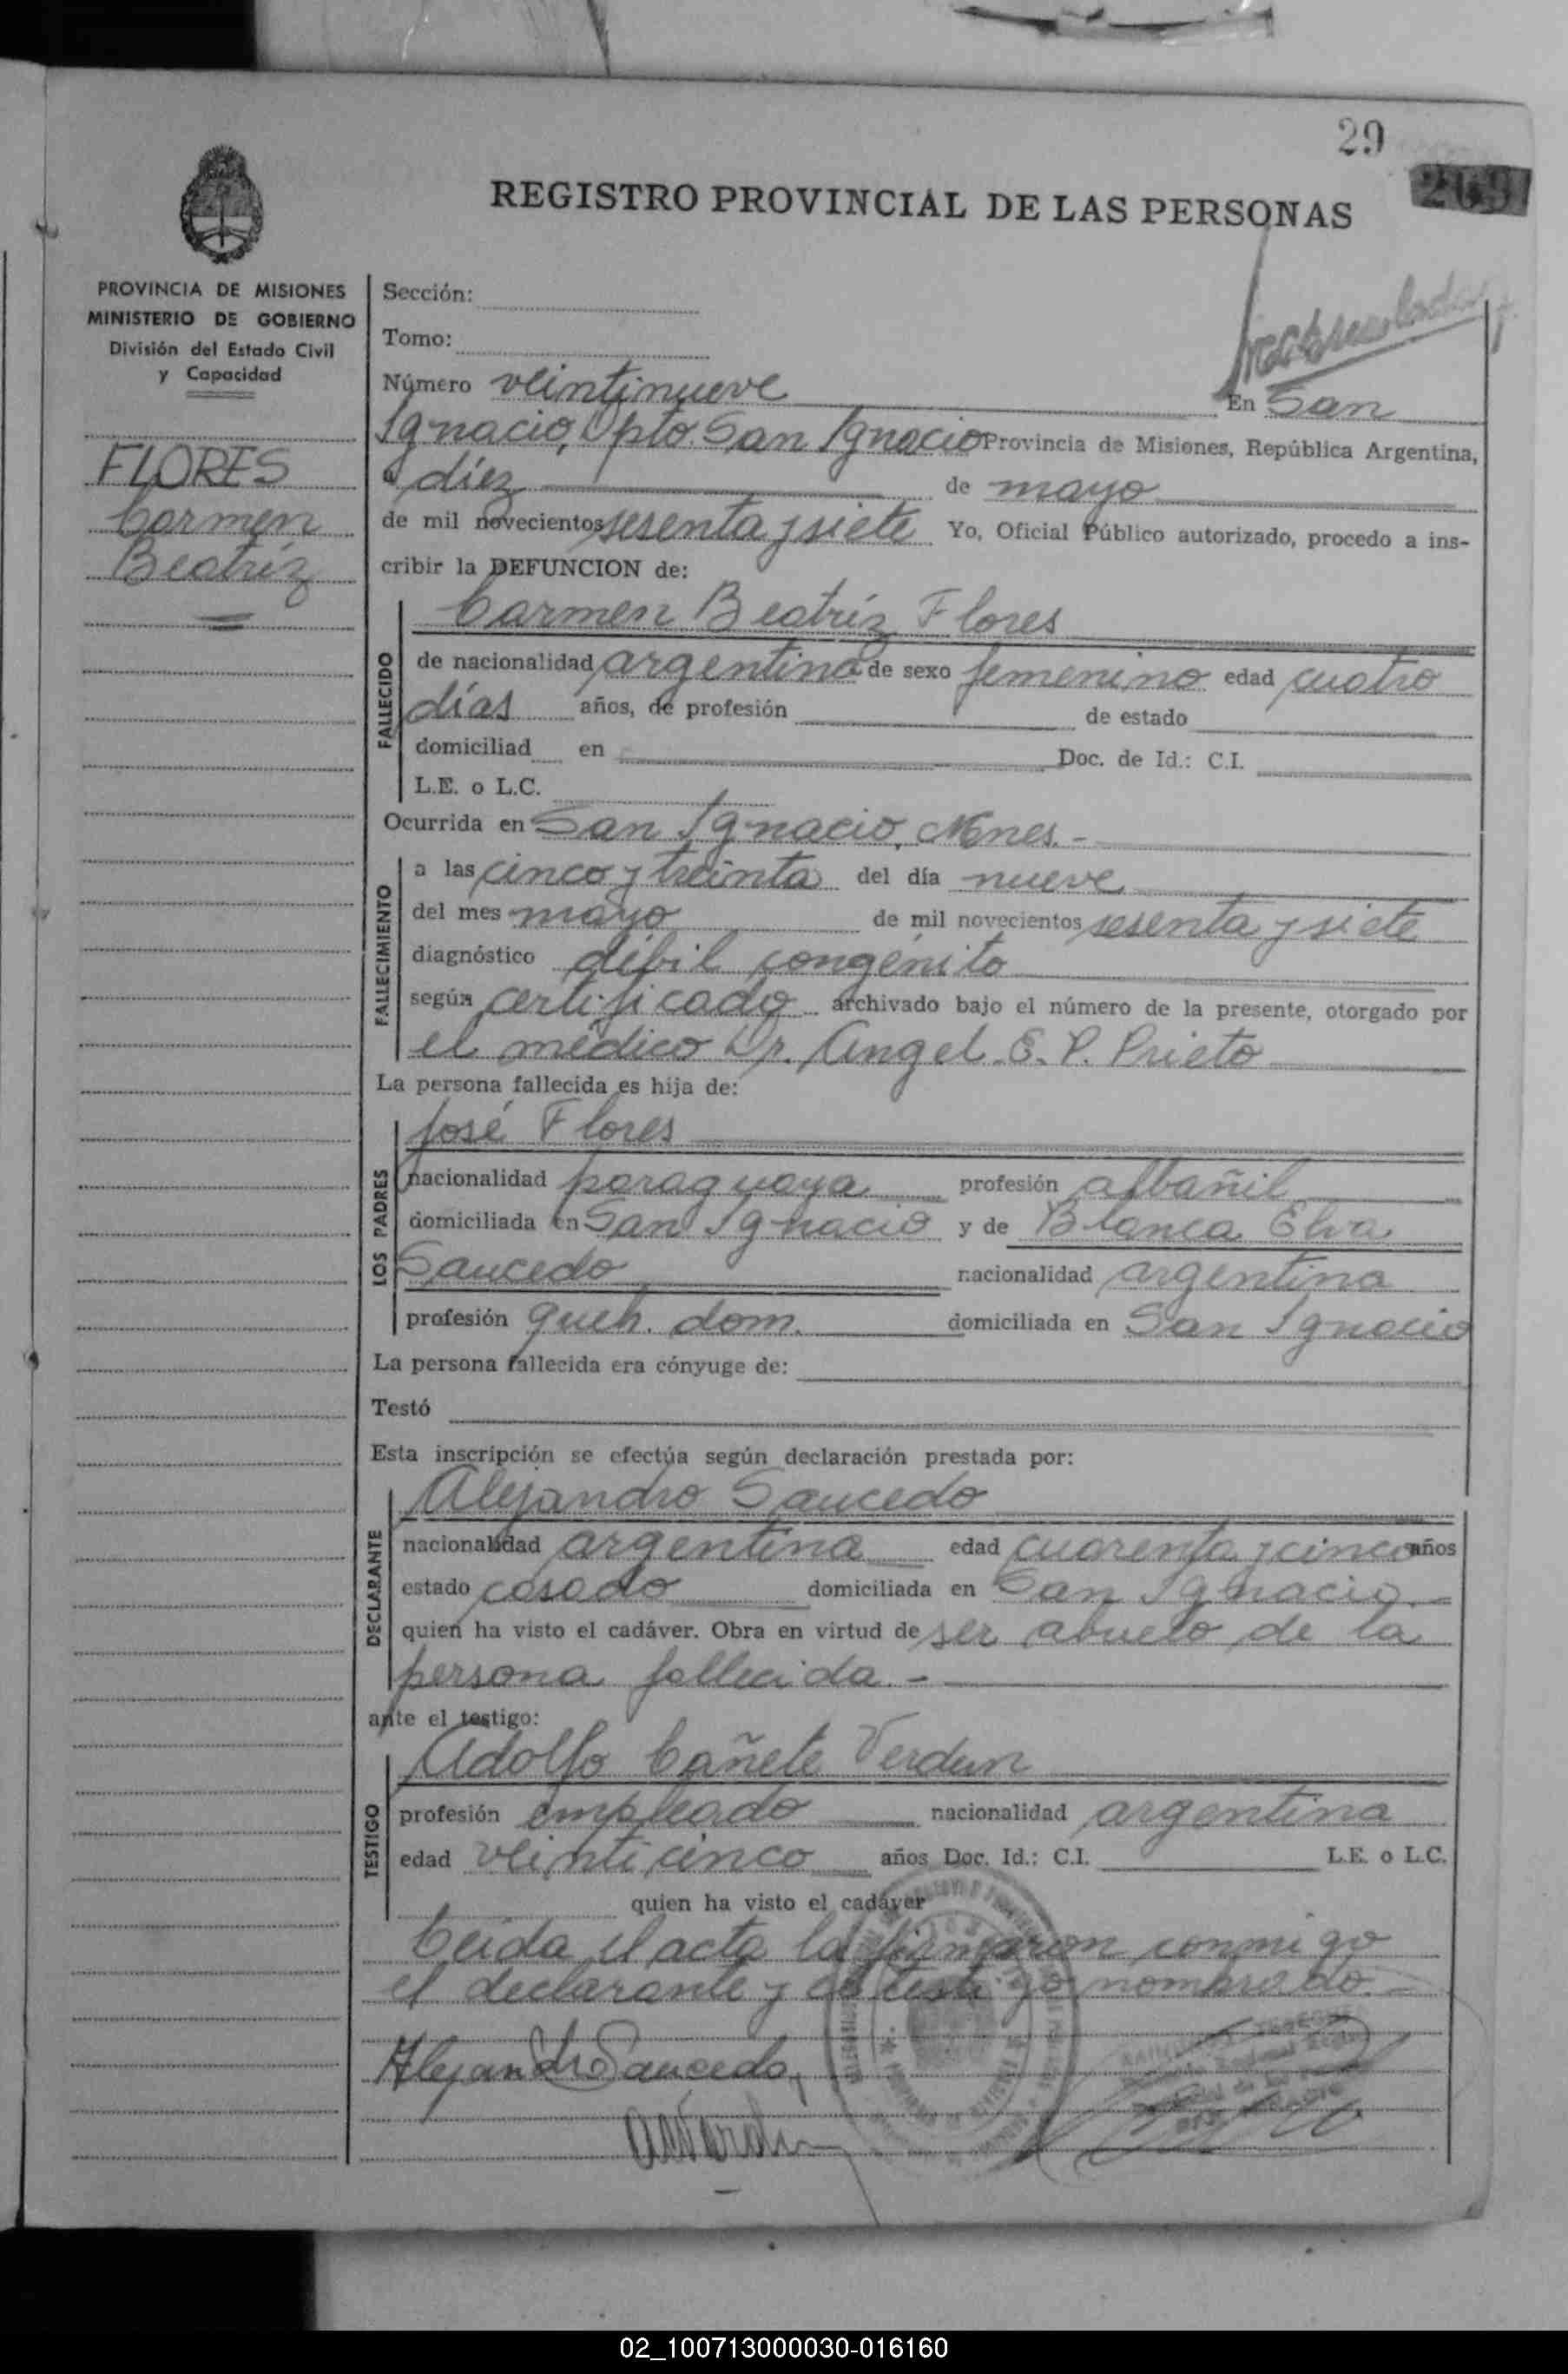 29
269
REGISTRO PROVINCIAL DE LAS PERSONAS
PROVINCIA DE MISIONES
MINISTERIO DE GOBIERNO
División del Estado Civil
y Capacidad
FLORES
Carmen
Beatríz
Sección:
Tomo:
Número veintinueve En San
Ignacio, Dpto. San Ignacio Provincia de Misiones, República Argentina,
a diez de mayo
de mil novecientos sesenta y siete Yo, Oficial Público autorizado, procedo a ins-
cribir la DEFUNCION de:
Carmen Beatríz Flores
FALLECIDO
de nacionalidad argentina de sexo femenino edad cuatro
días años, de profesión de estado
domiciliad en Doc. de Id.: C.I.
L.E. o L.C.
Ocurrida en San Ignacio, Mnes.-
FALLECIMIENTO
a las cinco y treinta del día nueve
del mes mayo de mil novecientos sesenta y siete
diagnóstico débil congénito
según certificado archivado bajo el número de la presente, otorgado por
el médico Dr. Angel E. P. Prieto
La persona fallecida es hija de:
LOS PADRES
José Flores
nacionalidad paraguaya profesión albañil
domiciliada en San Ignacio y de Blanca Elva
Saucedo nacionalidad argentina
profesión queh. dom. domiciliada en San Ignacio
La persona fallecida era cónyuge de:
Testó
Esta inscripción se efectúa según declaración prestada por:
DECLARANTE
Alejandro Saucedo
nacionalidad argentina edad cuarenta y cinco años
estado casado domiciliada en San Ignacio.-
quien ha visto el cadáver. Obra en virtud de ser abuelo de la
persona fallecida.-
ante el testigo:
TESTIGO
Adolfo Cañete Verdun
profesión empleado nacionalidad argentina
edad veinticinco años Doc. Id.: C.I. L.E. o L.C.
quien ha visto el cadáver
Leida el acta la firmaron conmigo
el declarante y el testigo nombrado.-
Alejandro Saucedo
02_100713000030-016160